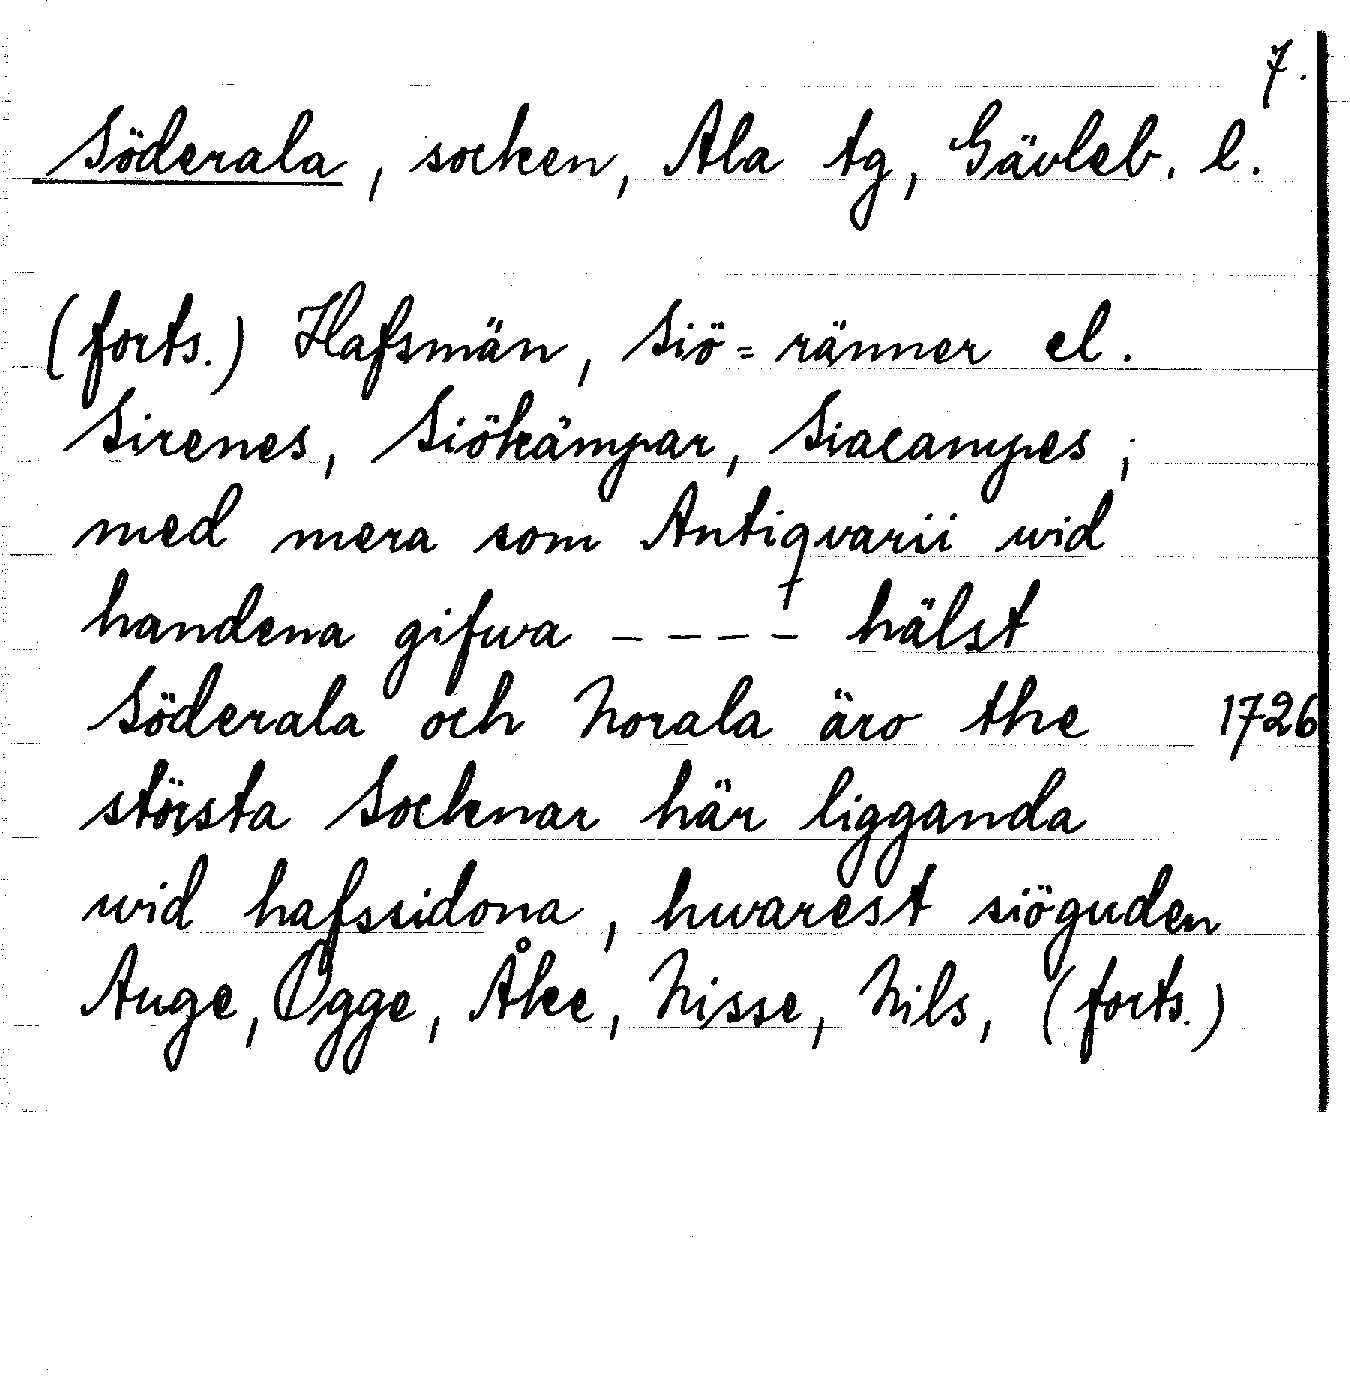 7.
Söderala, socken, Ala tg, Gävleb. l.
(forts.) Hafsmän, Siö=ränner el.
Sirenes, Siökämpar, Siacampes;
med mera som Antiqvarii wid
handena gifwa ---- hälst
Söderala och Norala äro the 1726
största Socknar här ligganda
wid hafssidona, hwarest siöguden
Auge, Ogge, Åke, Nisse, Nils, (forts.)